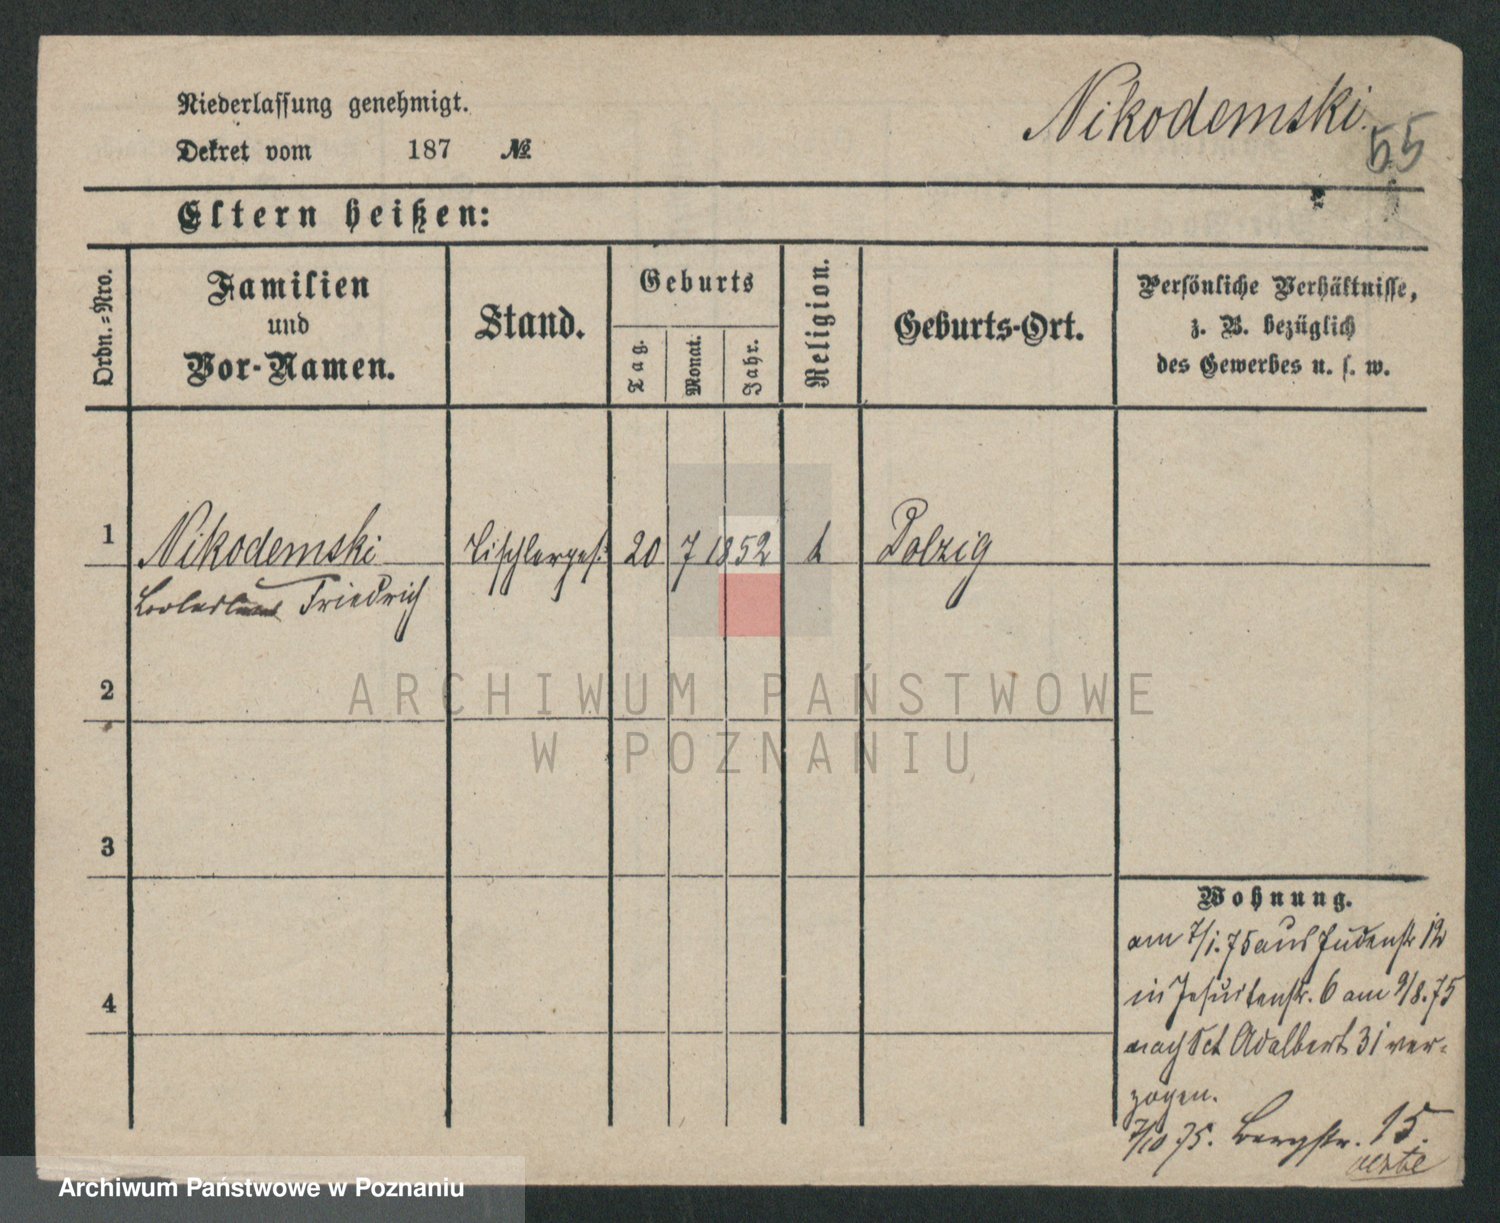 Niederlassung genehmigt.
Dekret vom 187 №
Nikodemski.
55
Eltern heißen:
Ordn.-Nro.
Familien
und
Vor-Namen.
Stand.
Geburts
Tag.
Monat.
Jahr.
Religion.
Geburts-Ort.
Persönliche Verhältnisse,
z. B. bezüglich
des Gewerbes u. s. w.
1 Nikodemski Tischlerges. 20 7 1852 Polzig
Friedrich
2
ARCHIWUM PAŃSTWOWE
W POZNANIU
3
4
Wohnung.
am 7/1.75 aus Judenstr 12
in Jesuitenstr. 6 am 9/8.75
nach Sct Adalbert 31 ver-
zogen.
7/10 75. Bergstr. 15.
Archiwum Państwowe w Poznaniu